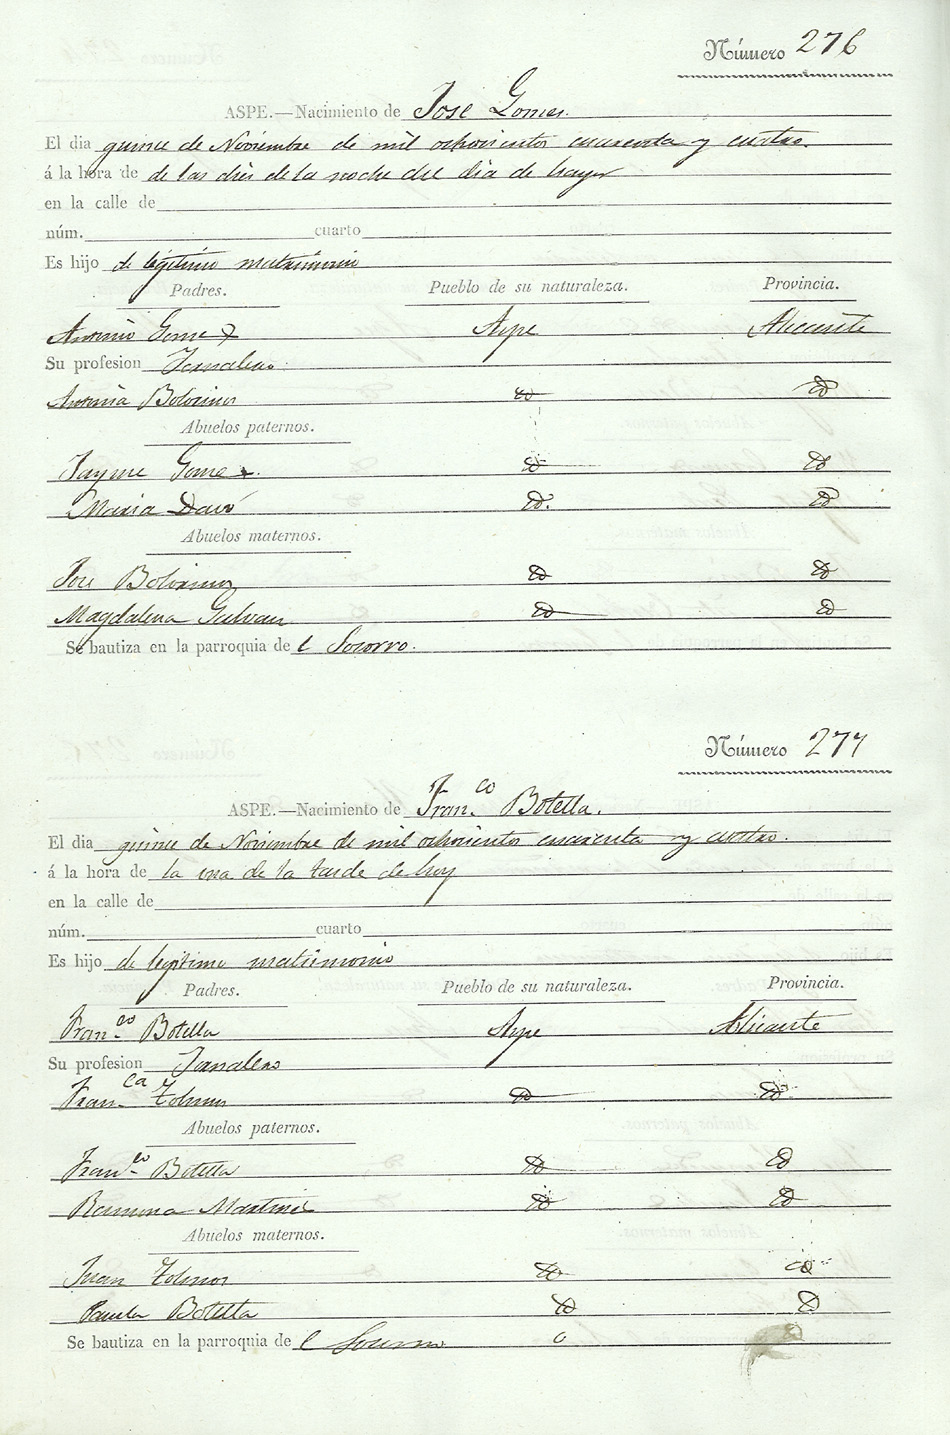 Número 276
ASPE.—Nacimiento de Jose Gomez.
El dia quince de Noviembre de mil ochocientos cuarenta y cuatro.
á la hora de de las dies de la noche del dia de hayer
en la calle de
núm. cuarto
Es hijo de legitimo matrimonio
Padres. Pueblo de su naturaleza. Provincia.
Antonio Gomez Aspe Alicante
Su profesion Jornalero
Antonia
Abuelos paternos.
Jayme Gomez.
Maria Davó
Abuelos maternos.
Jose
Magdalena Galvan
Se bautiza en la parroquia de l Socorro.
Número 277
ASPE.—Nacimiento de Fran.co Botella.
El dia quince de Noviembre de mil ochocientos cuarenta y cuatro.
á la hora de la una de la tarde de hoy
en la calle de
núm. cuarto
Es hijo de legitimo matrimonio
Padres. Pueblo de su naturaleza. Provincia.
Fran.co Botella Aspe Alicante
Su profesion Jornalero
Fran.ca
Abuelos paternos.
Fran.co Botella
Ramona Martinez
Abuelos maternos.
Juan
Paula Botella
Se bautiza en la parroquia de l Socorro